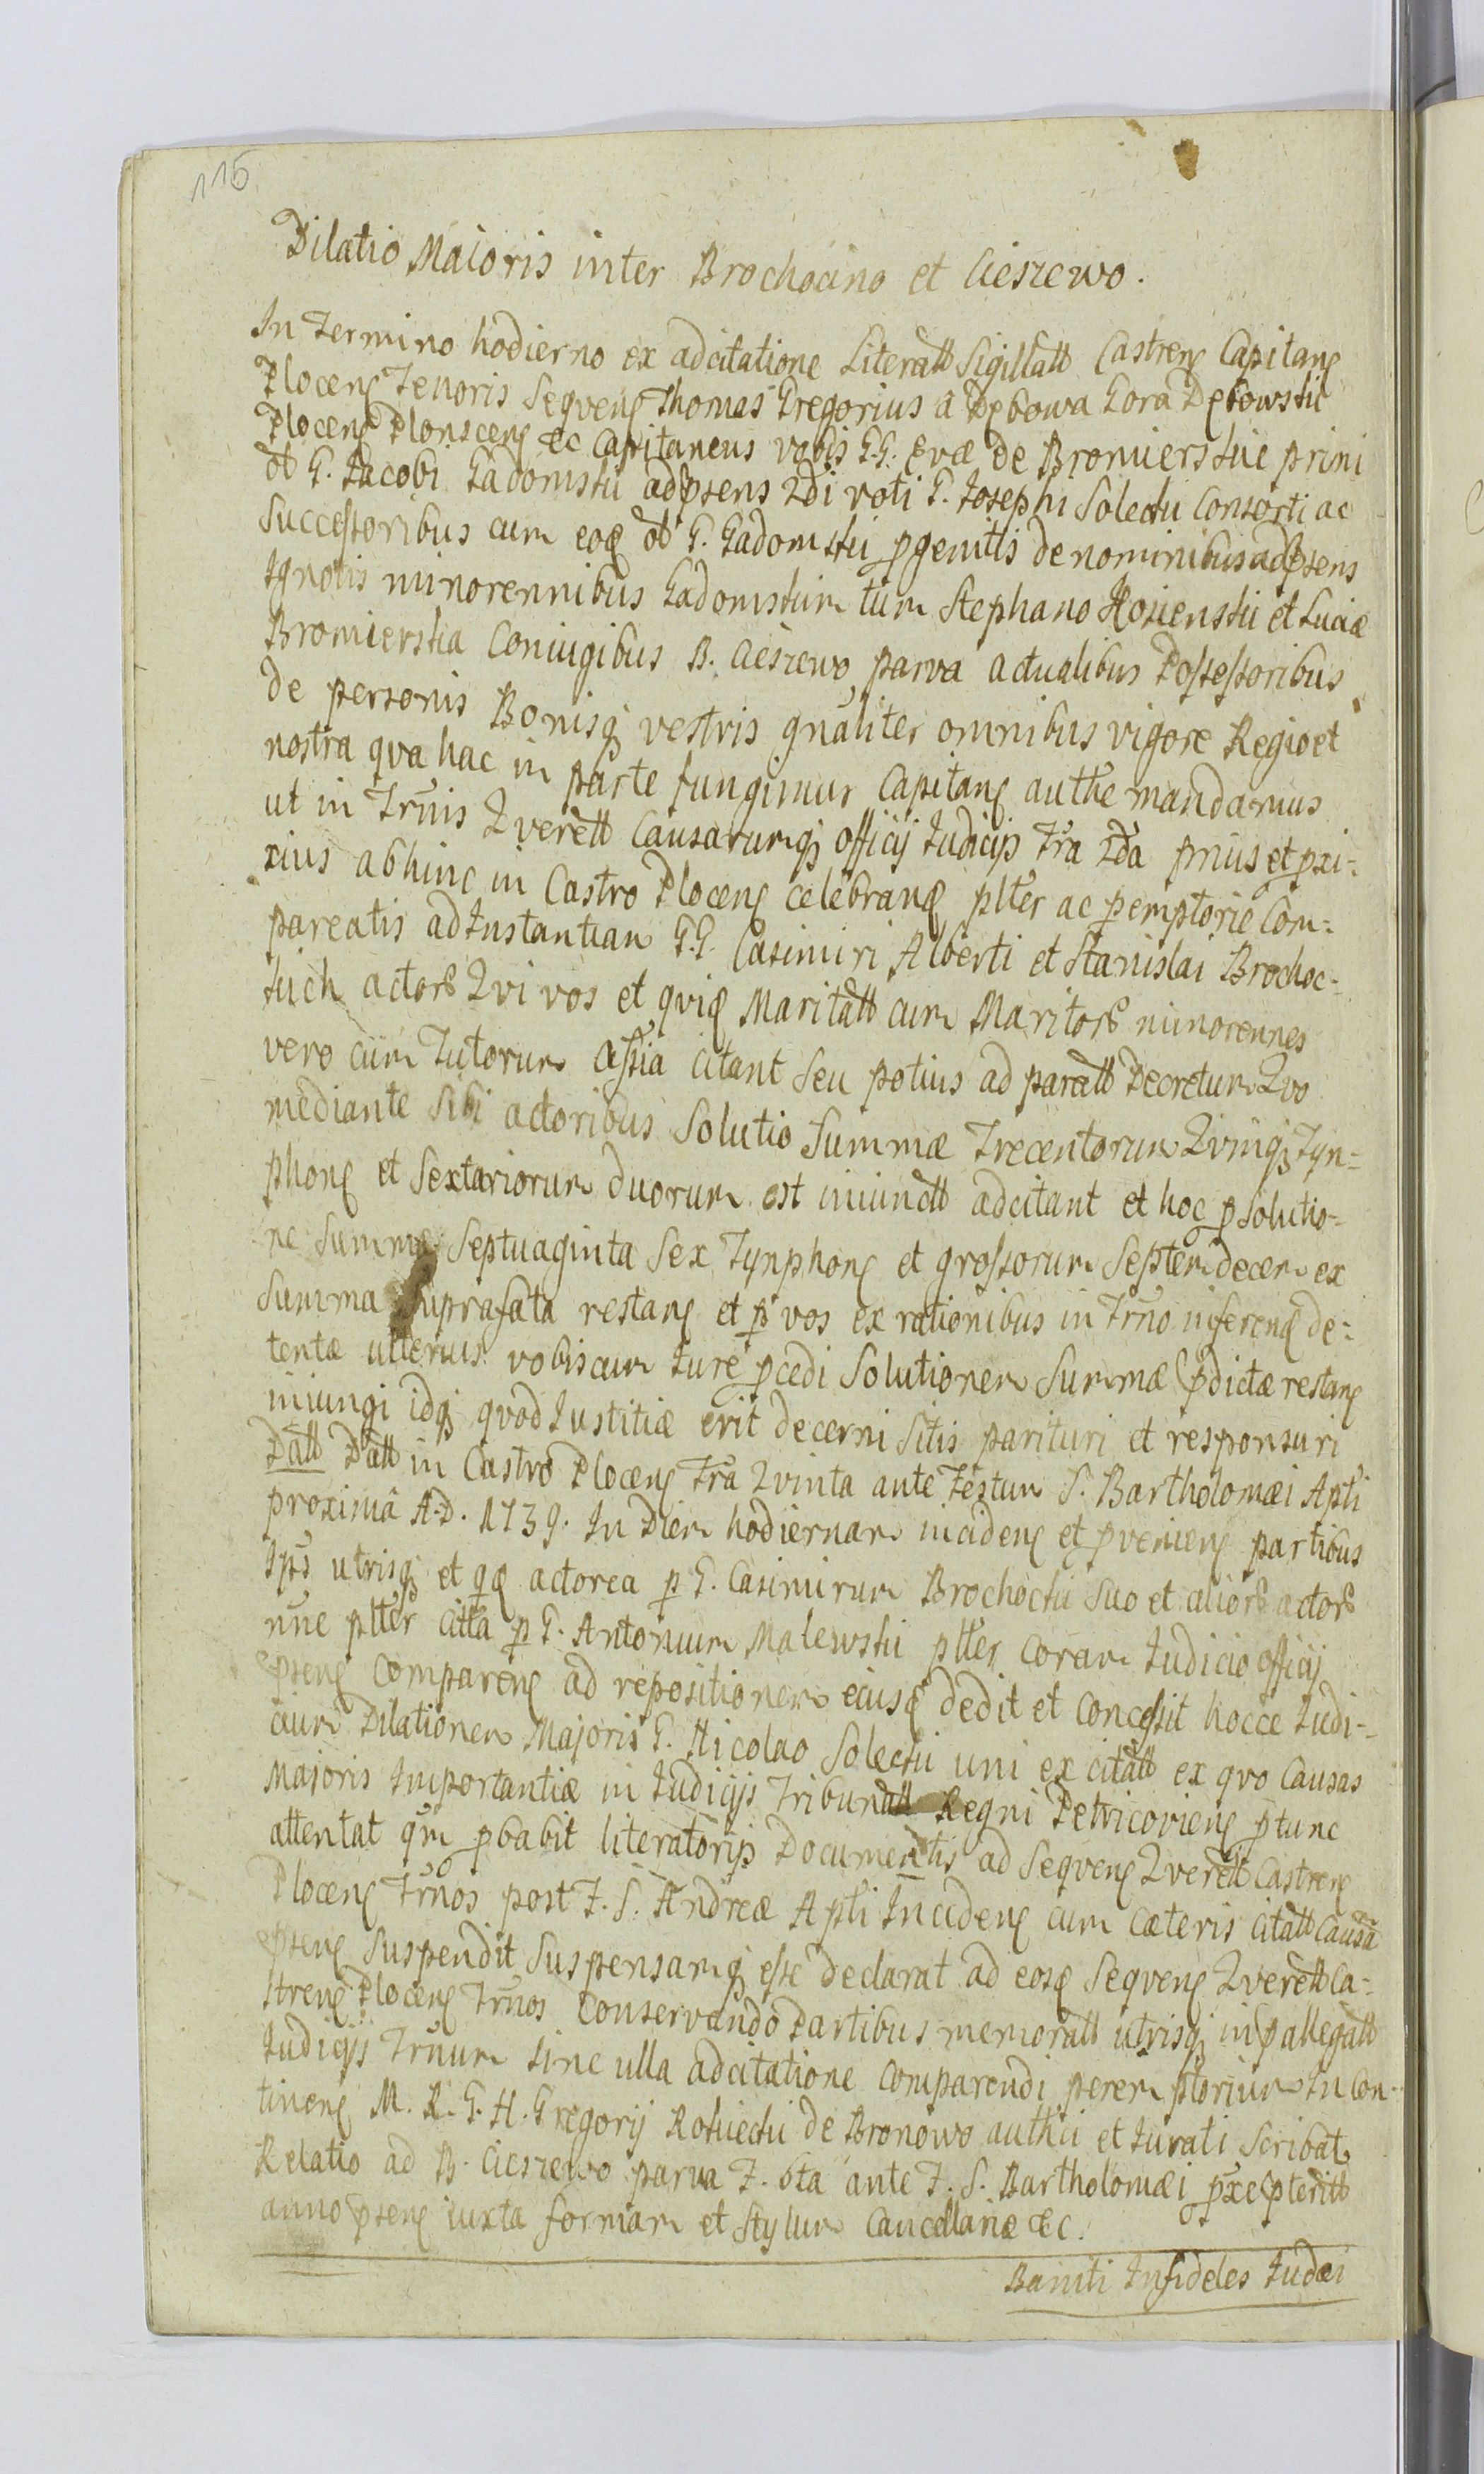 115
Dilatio Maioris inter Brochocino et Cieszewo.
In Termino hodierno ex adcitatione Literatt Sigillatt Castren Capitan
Plocen Tenoris Seqven Thomas Gregorius â Dębowa Gora Dębowski
Plocen Plonscen &c Capitaneus vobis G.G. Evæ de Bromierskie primi
ol G. Jacobi Gadomski adpræsens 2di voti G. Josephi Solecki Consorti ac
Successoribus cum eoq ol G. Gadomski pgenitis de nominibus adpsens
Ignotis minorennibus Gadomskim tum Stephano Kosienski et Luciæ
Bromierska Coniugibus B. Cieszewo parva actualibus Possessoribus
de personis Bonisq vestris gnaliter omnibus vigore Regio et
nostra qva hac in parte fungimur Capitan authe mandamus
ut in Trnis Qverell Causarumq officij Judicijs Fra 2da prius et pxi-
mius abhinc in Castro Plocen celebran plter ac pemptorie Com-
pareatis ad Instantiam G.G. Casimiri Alberti et Stanislai Brochoc-
kich actor Qvi vos et qviq Maritatt cum Maritor minorennes
vero cum Tutorum assia citant Seu potius ad paratt Decretum Qvo
mediante Sibi actoribus Solutio Summæ Trecentorum Qvinq Tyn-
phon et Sextariorum duorum est iniunctt adcitant et hoc p Solutio-
ne Summæ Septuaginta Sex Tynphon et grossorum Septemdecem ex
Summa Suprafata restan et p vos ex rationibus in Trno inferen de-
tentæ ulterius vobiscum Jure pcedi Solutionem Summæ pdictæ restan
iniungi idq qvod Justitiæ erit decerni Sitis parituri et responsuri
Datt Datt in Castro Plocen Fra Qvinta ante Festum S. Bartholomæi Apli
proximâ A.D. 1739. In Diem hodiernam inciden et pvenien partibus
Ips utrisq et qq actorea p G. Casimirum Brochocki Suo et alior actor
nne plter citta p G. Antonium Malewski plter Coram Judicio officij
psen Comparen ad repositionem eiusq dedit et Concessit hocce Judi-
cium Dilationem Majoris G. Nicolao Solecki uni ex citatt ex qvo Causas
Majoris Importantiæ in Judicijs Tribunatt Regni Petricovien ptunc
attentat qm pbabit literatorijs Documentis ad Seqven Qverell Castren
Plocen Trnos post F. S. Andreæ Apli Inciden cum Cæteris Citatt Causa
psen Suspendit Suspensamq esse declarat ad eosq Seqven Qverell Ca-
stren Plocen Trnos Conservando Partibus memoratt utrisq in pallegatt
Judicijs Trnum Sine ulla adcitatione Comparendi peremptorium In Con-
tinen M. R. G. N. Gregorij Rokiecki de Bronowo authci et Jurati Scribat
Relatio ad B. Cieszewo parva F. 6ta ante F. S. Bartholomæi pxe pteritt
anno psen iuxta formam et Stylum Cancellariæ &c.
Baniti Infideles Judæi